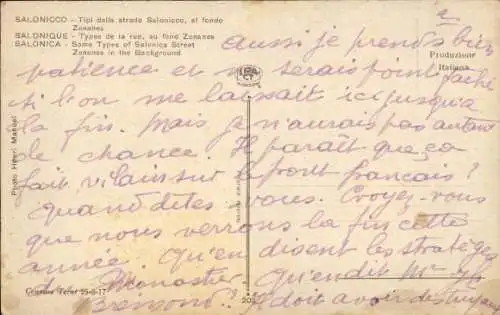 SALONICCO — Tipi della strada Salonicco, el fondo
Zenanes
SALONIQUE - Types de la rue, au fond Zenanes
SALONICA - Some Types of Salonica Street
Zenanes in the Background
Produzione
Italiana
Photo Henri Manuel
aussi je prends bien
patience et ne serais point fâché
si l'on me laissait ici jusqu'à
la fin. Mais je n'aurais pas autant
de chance. Il paraît que ça
fait vilain sur le front français?
quand dites-vous. Croyez-vous
que nous verrons la fin cette
année. Qu'en disent les stratèges
du Monastier
qu'en dit Mr
Il doit avoir des tuyaux
Censura Terni 25-8-17
20